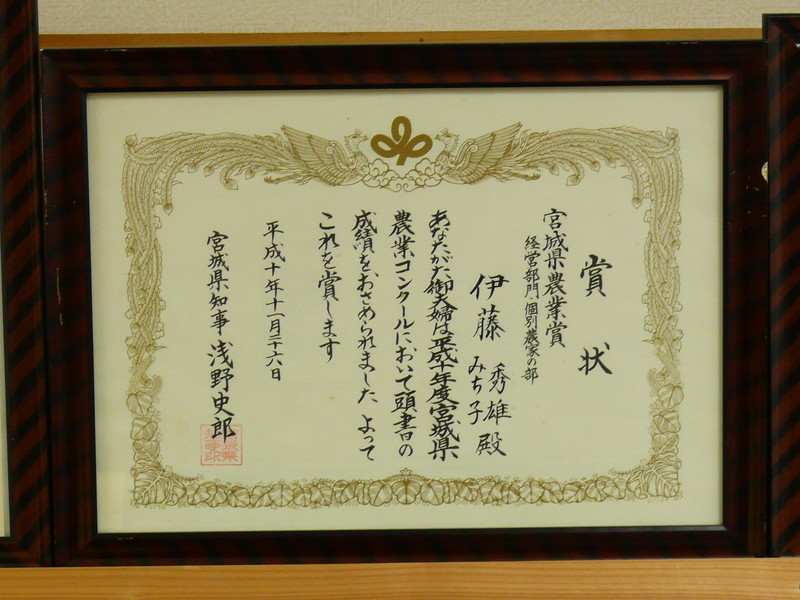 賞状
宮城県農業賞
経営部門・個別農家の部
伊藤 秀雄
みち子 殿
あなたがた御夫婦は平成十年度宮城県
農業コンクールにおいて頭書の
成績をおさめられました よって
これを賞します
平成十年十一月二十六日
宮城県知事 浅野史郎